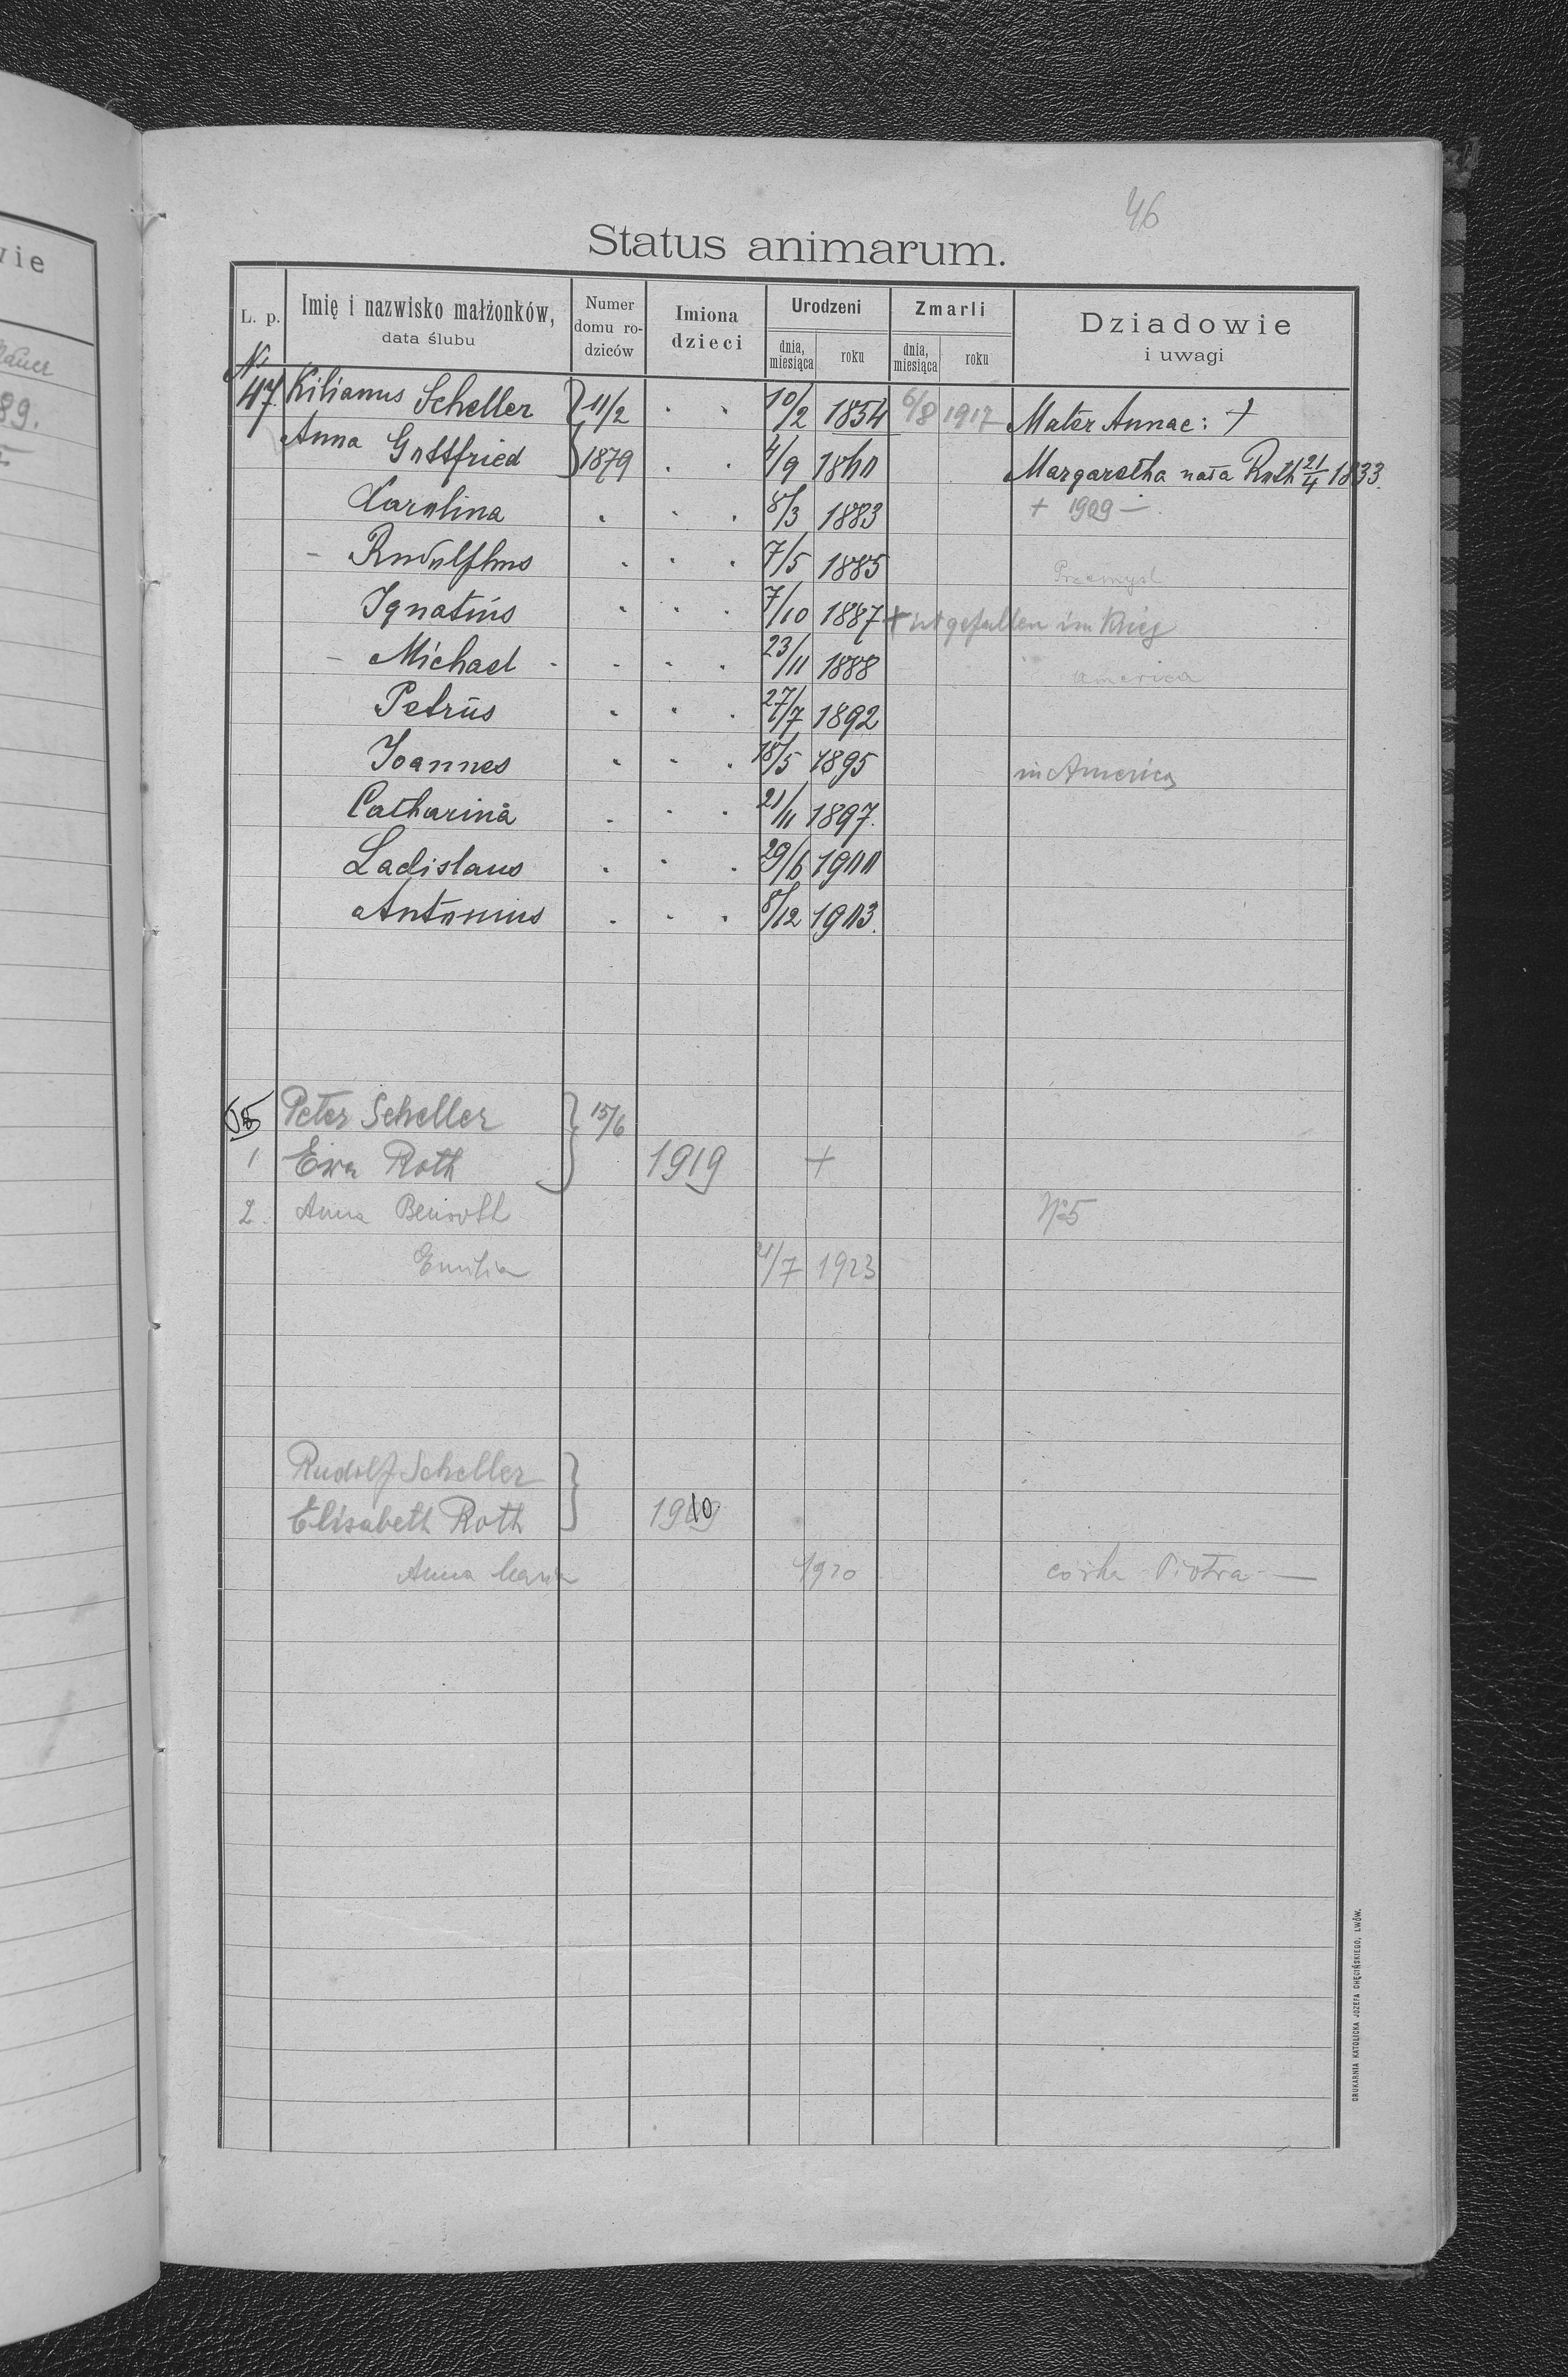 46
Status animarum.
L. p. Imię i nazwisko małżonków, data ślubu Numer domu rodziców Imiona dzieci Urodzeni dnia, miesiąca roku Zmarli dnia, miesiąca roku Dziadowie i uwagi
No 47. Kilianus Scheller } 11/2 10/2 1854 6/8 1917 Mater Annae: +
Anna Gottfried } 1879 4/9 1860 Margaretha nata Roth 21/4 1833.
Karolina 8/3 1883 + 1909 —
– Rudolfhus 7/5 1885 Przemysl
Ignatius 7/10 1887 + ist gefallen im Krieg
– Michael 23/11 1888 America
Petrus 27/7 1892
Joannes 18/5 1895 in America
Catharina 21/11 1897.
Ladislaus 29/6 1900
Antonius 8/12 1903.
Peter Scheller } 15/6
1 Ewa Roth 1919 +
2. Anna No 5
Emilia 21/7 1923
Rudolf Scheller }
Elisabeth Roth 1910
Anna Maria 1920 córka Piotra —
DRUKARNIA KATOLICKA JÓZEFA CHĘCIŃSKIEGO, LWÓW.
89.